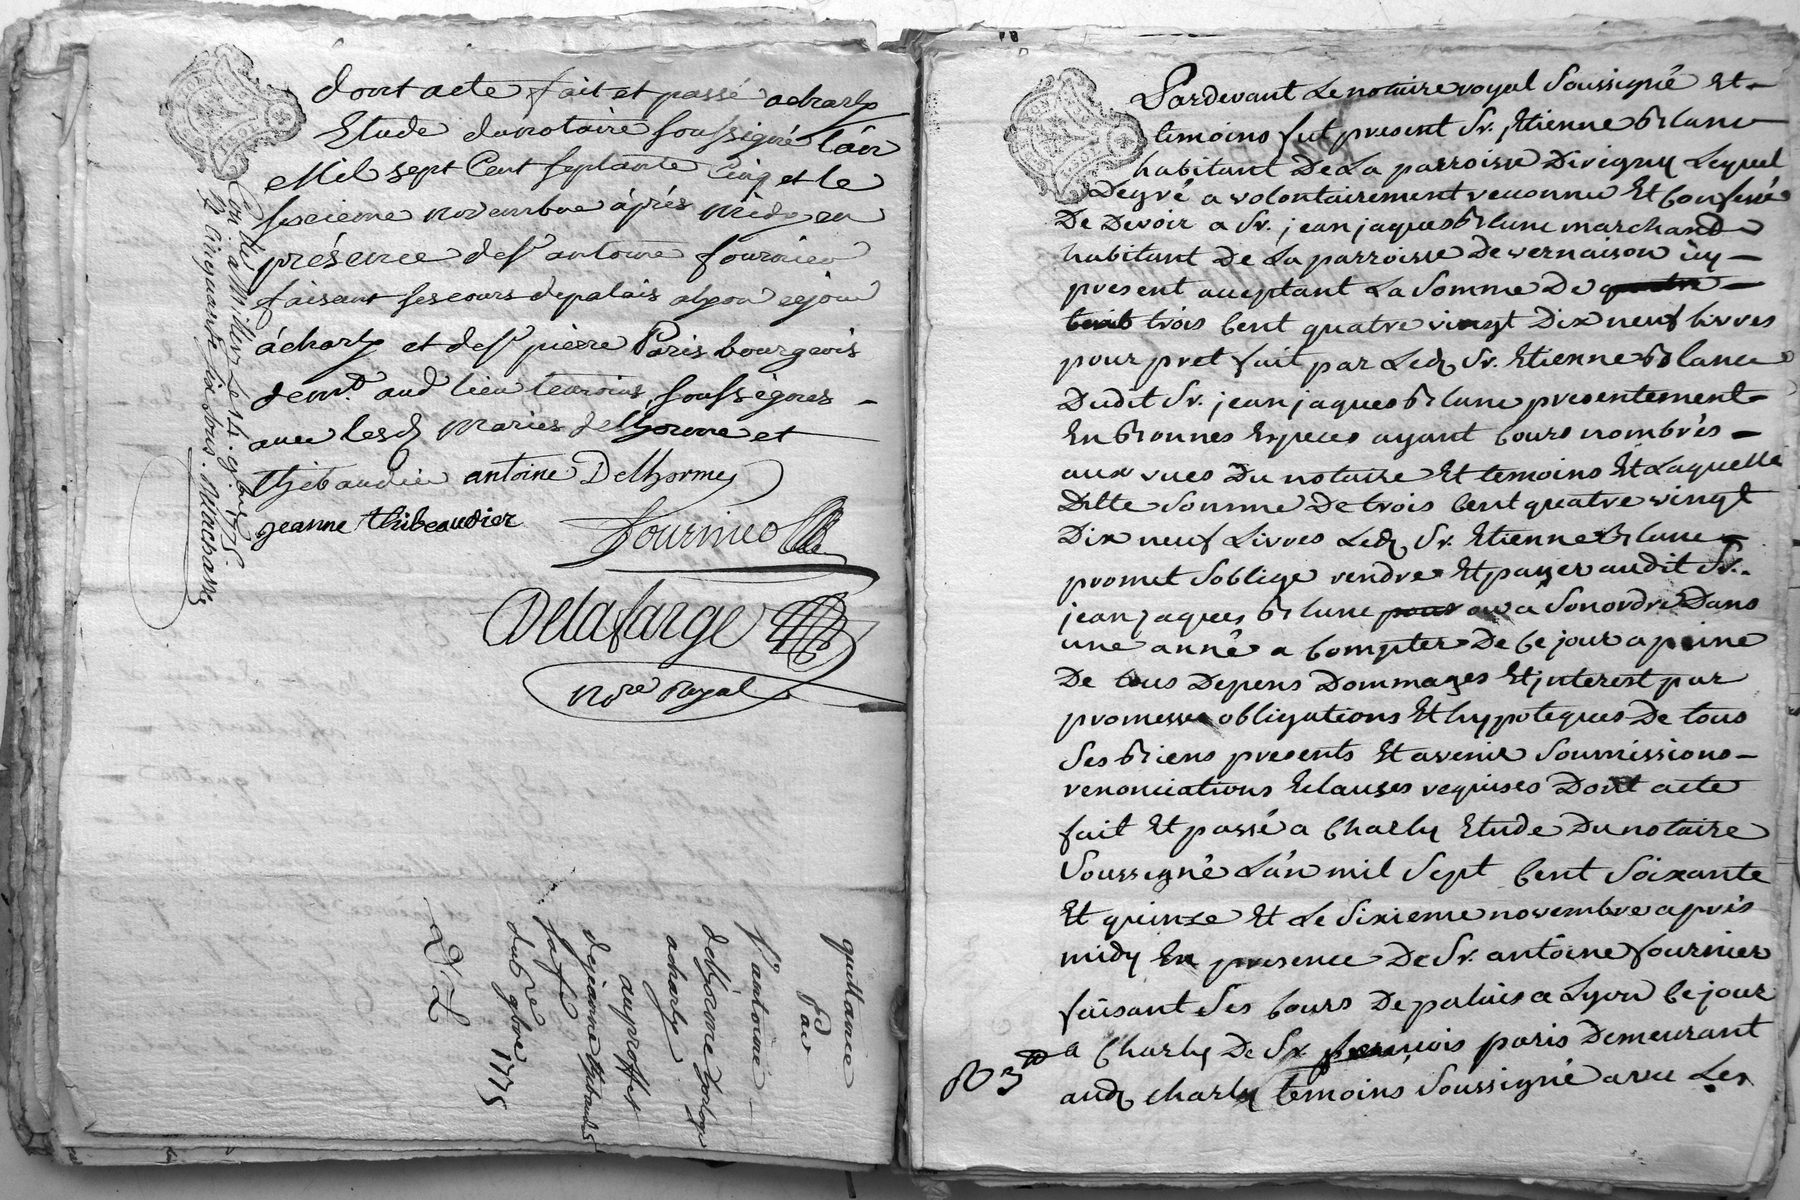 dont acte fait et passé a charly
Etude du notaire soussigné l'an
Mil sept Cent septante Cinq et le
sixieme novembre après midy en
présence de sr antoine fournier
faisant ses cours de palais a lyon ce jour
à charly et de sr pierre Paris bourgeois
dem.t aud lieu temoins soussignés
avec lesd mariés delhorme et
thibaudier antoine Delhorme
jeanne thibeaudier
fournier
Delafarge
nore Royal
Con.lé a Millery Le 14. 9bre 1775.
R. Cinquante six sous.
quittance
Par
sr antoine
delhorme
a charly
au proffit
de jeanne thibaudier
sa fe
du 6e 9bre 1775
Pardevant Le notaire royal soussigné Et
temoins fut present Sr. Etienne Blanc
habitant De La parroisse Divigny Lequel
De gré a volontairement reconnu Et Confessé
De Devoir a Sr. jean jaques Blanc marchand
habitant De La parroisse De vernaison icy
present aceptant La Somme De quatre
trois Cent quatre vingt Dix neuf livres
pour pret fait par Led Sr. Etienne Blanc
Dudit Sr. jean jaques Blanc presentement
En Bonnes Especes ayant Cours nombrés
aux vues Du notaire Et temoins Et Laquelle
Ditte Somme De trois Cent quatre vingt
Dix neuf Livres Led Sr. Etienne Blanc
promet Soblige rendre Et payer audit Sr.
jean jaques Blanc pour ou a Son ordre Dans
une anné a Compter De Ce jour a peine
De tous Depens Dommages Et jnterest par
promesse obligations Et hypoteques De tous
Ses Biens presents Et avenir Soumissions
renonciations Et clauses requises Dont acte
fait Et passé a Charly Etude Du notaire
Soussigné L'an mil Sept Cent Soixante
Et quinze Et Le Sixieme novembre après
midy En presence De Sr. antoine fournier
faisant Ses Cours De palais a Lyon Ce jour
a Charly De Sr paris Demeurant
aud charly temoins Soussigné avec Les